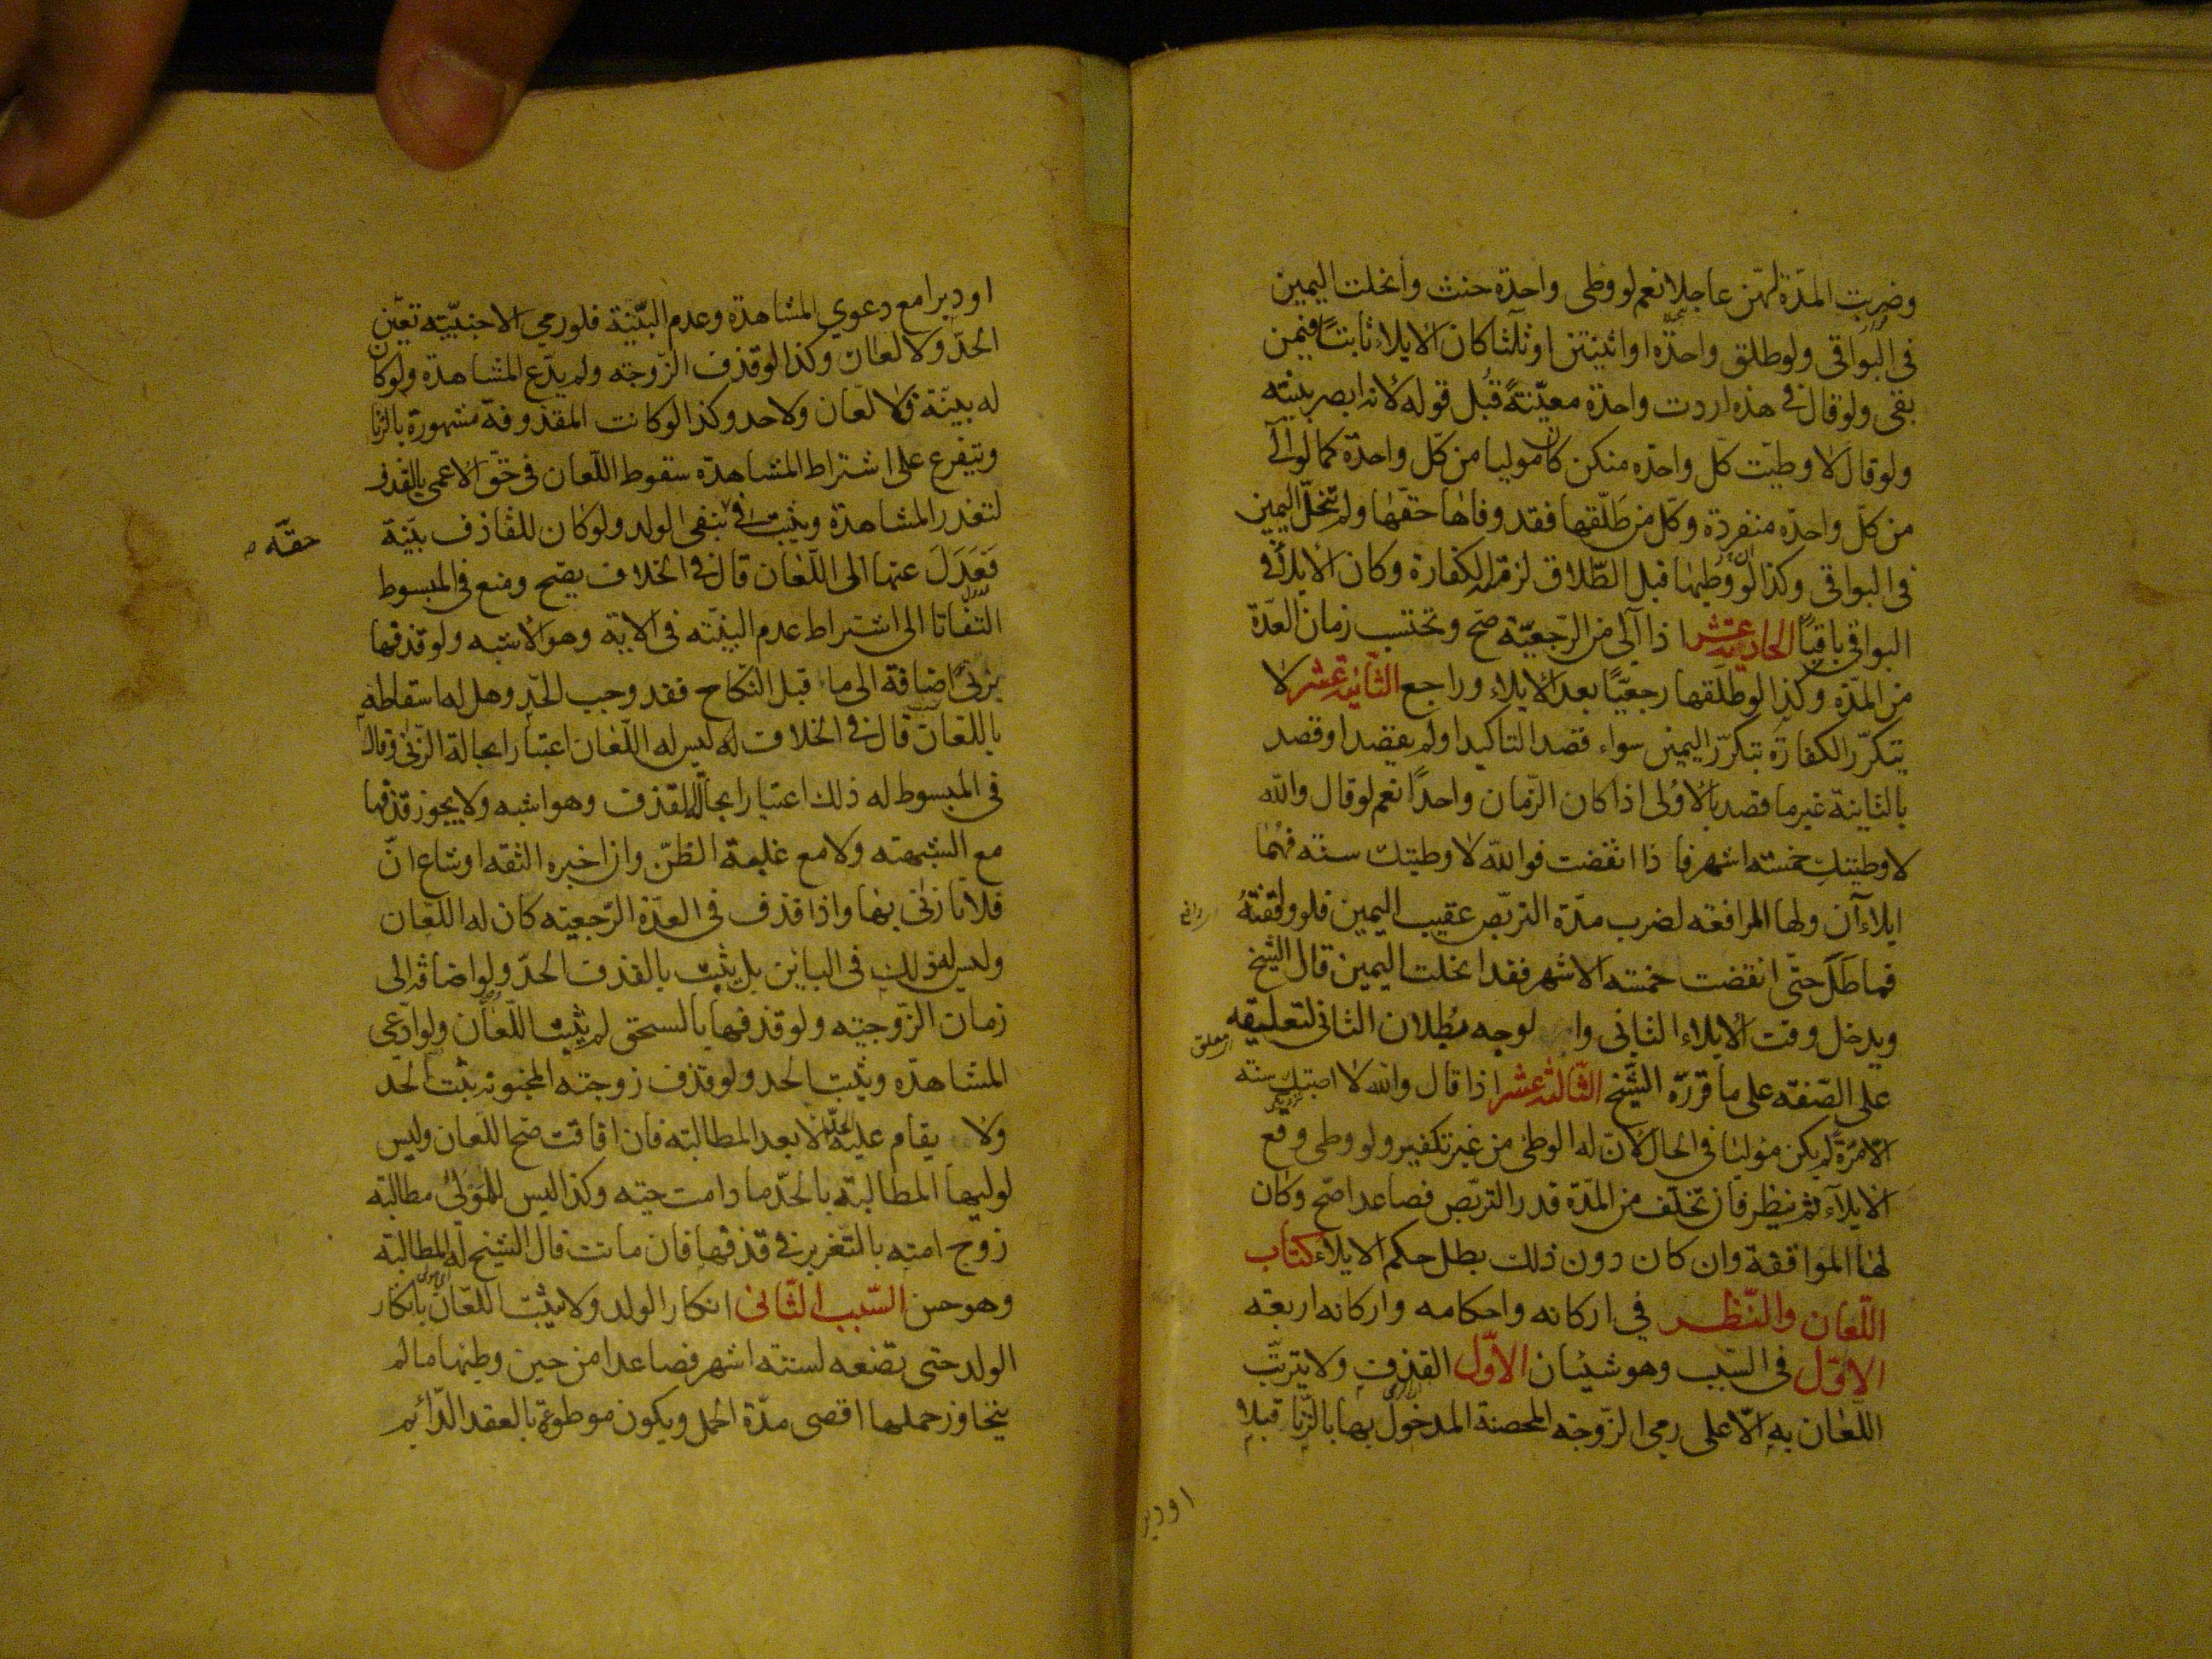 وضربت المدّة لهنّ عاجلا نعم لو وطى واحدة حنث وانحلت اليمين
فى البواقى ولو طلق واحدة او اثنتين او ثلثا كان الايلاء ثابتاً فيمن
بقى ولو قال فى هذه اردت واحدة معيّنةً قُبل قوله لانه ابصر بنيته
ولو قال لا وطيت كل واحده منكن كان موليا من كل واحدة كما لو آلى
من كل واحده منفردة وكل من طَلّقها فقد وفاها حقّها ولم تنحلّ اليمين
فى البواقى وكذا لو وطيها قبل الطّلاق لزمته الكفارة وكان الايلاء فى
البواقى باقياً الحادية عشر اذا آلى من الرّجعيّة صحّ وتحتسب زمان العدّة
من المدّة وكذا لو طلّقها رجعيّاً بعد الايلاء وراجع الثّانية عشر لا
يتكرّر الكفارة بتكرّر اليمين سواء قصد التاكيد او لم يقصد او قصد
بالثانية غير ما قصد بالاولى اذا كان الزّمان واحداً نعم لو قال والله
لا وطيتكِ خمسته اشهر فا ذا انقضت فوالله لا وطيتك سنه فهُما
ايلاءآن ولها المرافعه لضرب مدّة التربّص عقيب اليمين فلو وافقتهُ
فماطَلَ حتّى انقضت خمسته الاشهر فقد انحلت اليمين قال الشيخ
ويدخل وقت الايلاء الثانى وا لوجه بطلان الثانى لتعليقه
على الصّفته على ما قرّره الشّيخ الثّالثة عشر اذا قال والله لا اصبتك سنه
الّا مرّة لم يكن موليا فى الحال لانّ له الوطئ من غير تكفير ولو وطى وقع
الايلاء ثم ينظر فان تخلّف من المدّة قدر التربّص فصاعدا صحّ وكان
لها المواقفة وان كان دون ذلك بطل حكم الايلاء كتاب
اللّعان والنّظر في اركانه واحكامه واركانه اربعه
الاوّل فى السّبب وهو شيئان الاوّل القذف ولا يترتّب
اللّعان به الّا على رمى الزّوجه المحصنة المدخول بها بالزّنا قبلا
او دبر
او دبرا مع دعوي المشاهدة وعدم البيّنة فلو رمى الاجنبيّه تعيّن
الحدّ ولا لعان وكذا لو قذف الزّوجه ولم يدّع المشاهدة ولو كان
له بينّة فلا لعان ولا حد وكذا لو كانت المقذوفة مشهورة بالزنا
ويتفرع على اشتراط المشاهدة سقوط اللّعان فى حقّ الاعمى بالقذف
لتعذر المشاهدة ويثبت فى بنفى الولد ولو كان للقاذف بيّنة
حقّه
فعَدَلَ عنها الى اللّعان قال فى الخلاف يصح ومنع فى المبسوط
التفاتا الى اشتراط عدم البيّنه فى الاية وهو الاشبه ولو قذفها
بزنىً اضافة الى ما قبل النكاح فقد وجب الحدّ وهل له اسقاطه
باللّعان قال فى الخلاف ليس له اللّعان اعتبارا بحالة الزّنى وقال
فى المبسوط له ذلك اعتبارا بحالة القذف وهو اشبه ولا يجوز قذفها
مع الشبهته ولا مع غلبة الظنّ وان اخبره الثقه او شاع انّ
فلانا زنى بها واذا قذف فى العدّة الرّجعيته كان له اللعان
وليس له ذلك فى البائن بل يثبت بالقذف الحدّ ولو اضافه الى
زمان الزّوجيّه ولو قذفها بالسحق لم يثبت اللّعان ولو ادّعى
المشاهدة ويثبت الحد ولو قذف زوجته المجنونه يثبت الحد
ولا يقام عليه الا بعد المطالبته فان افاقت صح اللعان وليس
لوليها المطالبة بالحدّ ما دامت حيّه وكذا ليس للمولى مطالبة
زوج امته بالتّعزير فى قذفها فان ماتت قال الشيخ له المطالبة
وهو حسن السّبب الثّانى انكار الولد ولا يثبت اللّعان بانكار
الولد حتى تضعه لستته اشهر فصاعدا من حين وطيها ما لم
يتجاوز حملها اقصى مدّة الحمل ويكون موطوءة بالعقد الدّائم